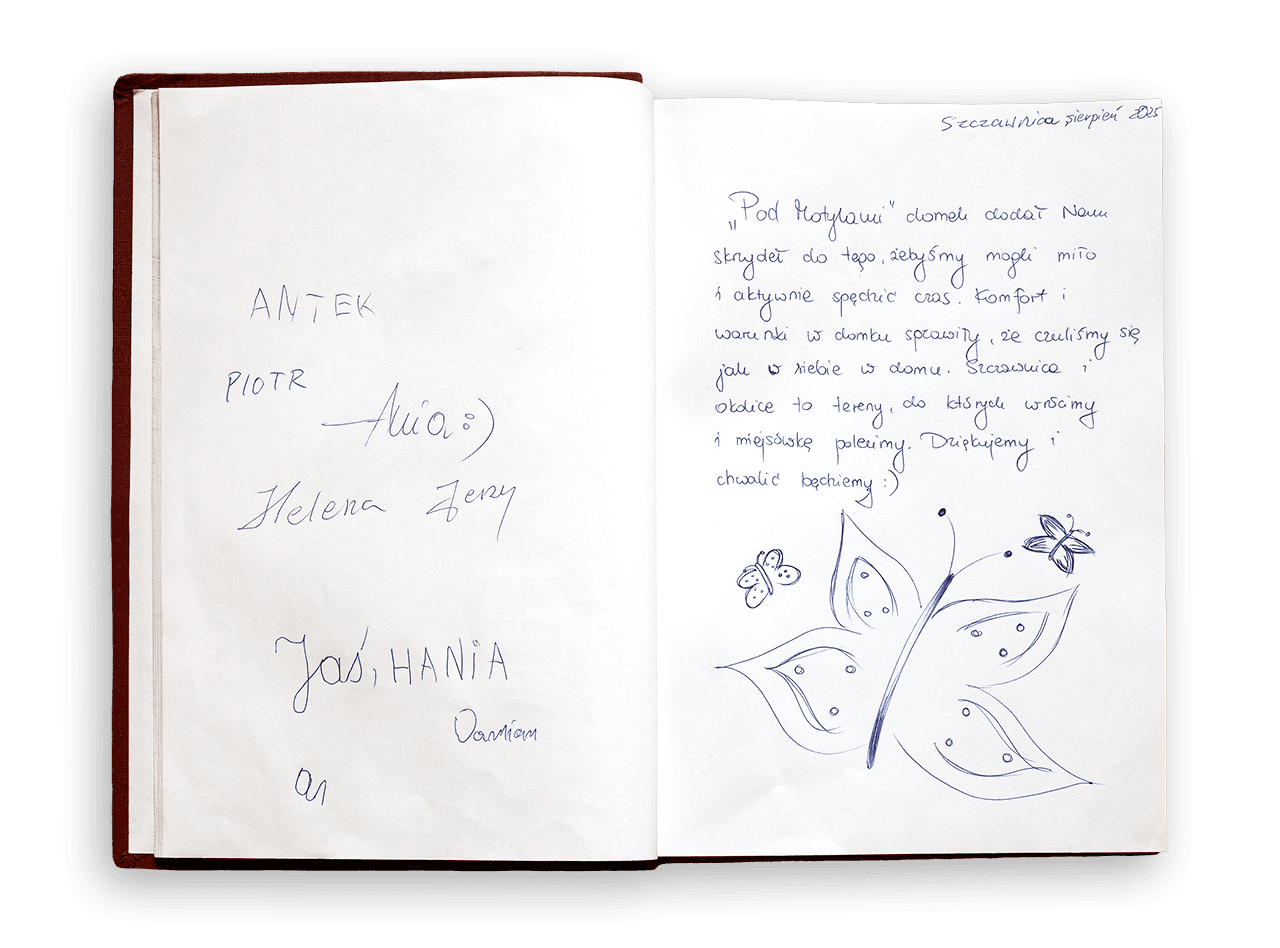 ANTEK
PIOTR
Ania :)
Helena Jerzy
Jaś, HANiA
Damian
Szczawnica sierpień 2025
„Pod Motylami" domek dodał Nam
skrzydeł do tego, żebyśmy mogli miło
i aktywnie spędzić czas. Komfort i
warunki w domku sprawiły, że czuliśmy się
jak w siebie w domu. Szczawnica i
okolice to tereny, do których wrócimy
i miejsówkę polecimy. Dziękujemy i
chwalić będziemy :)